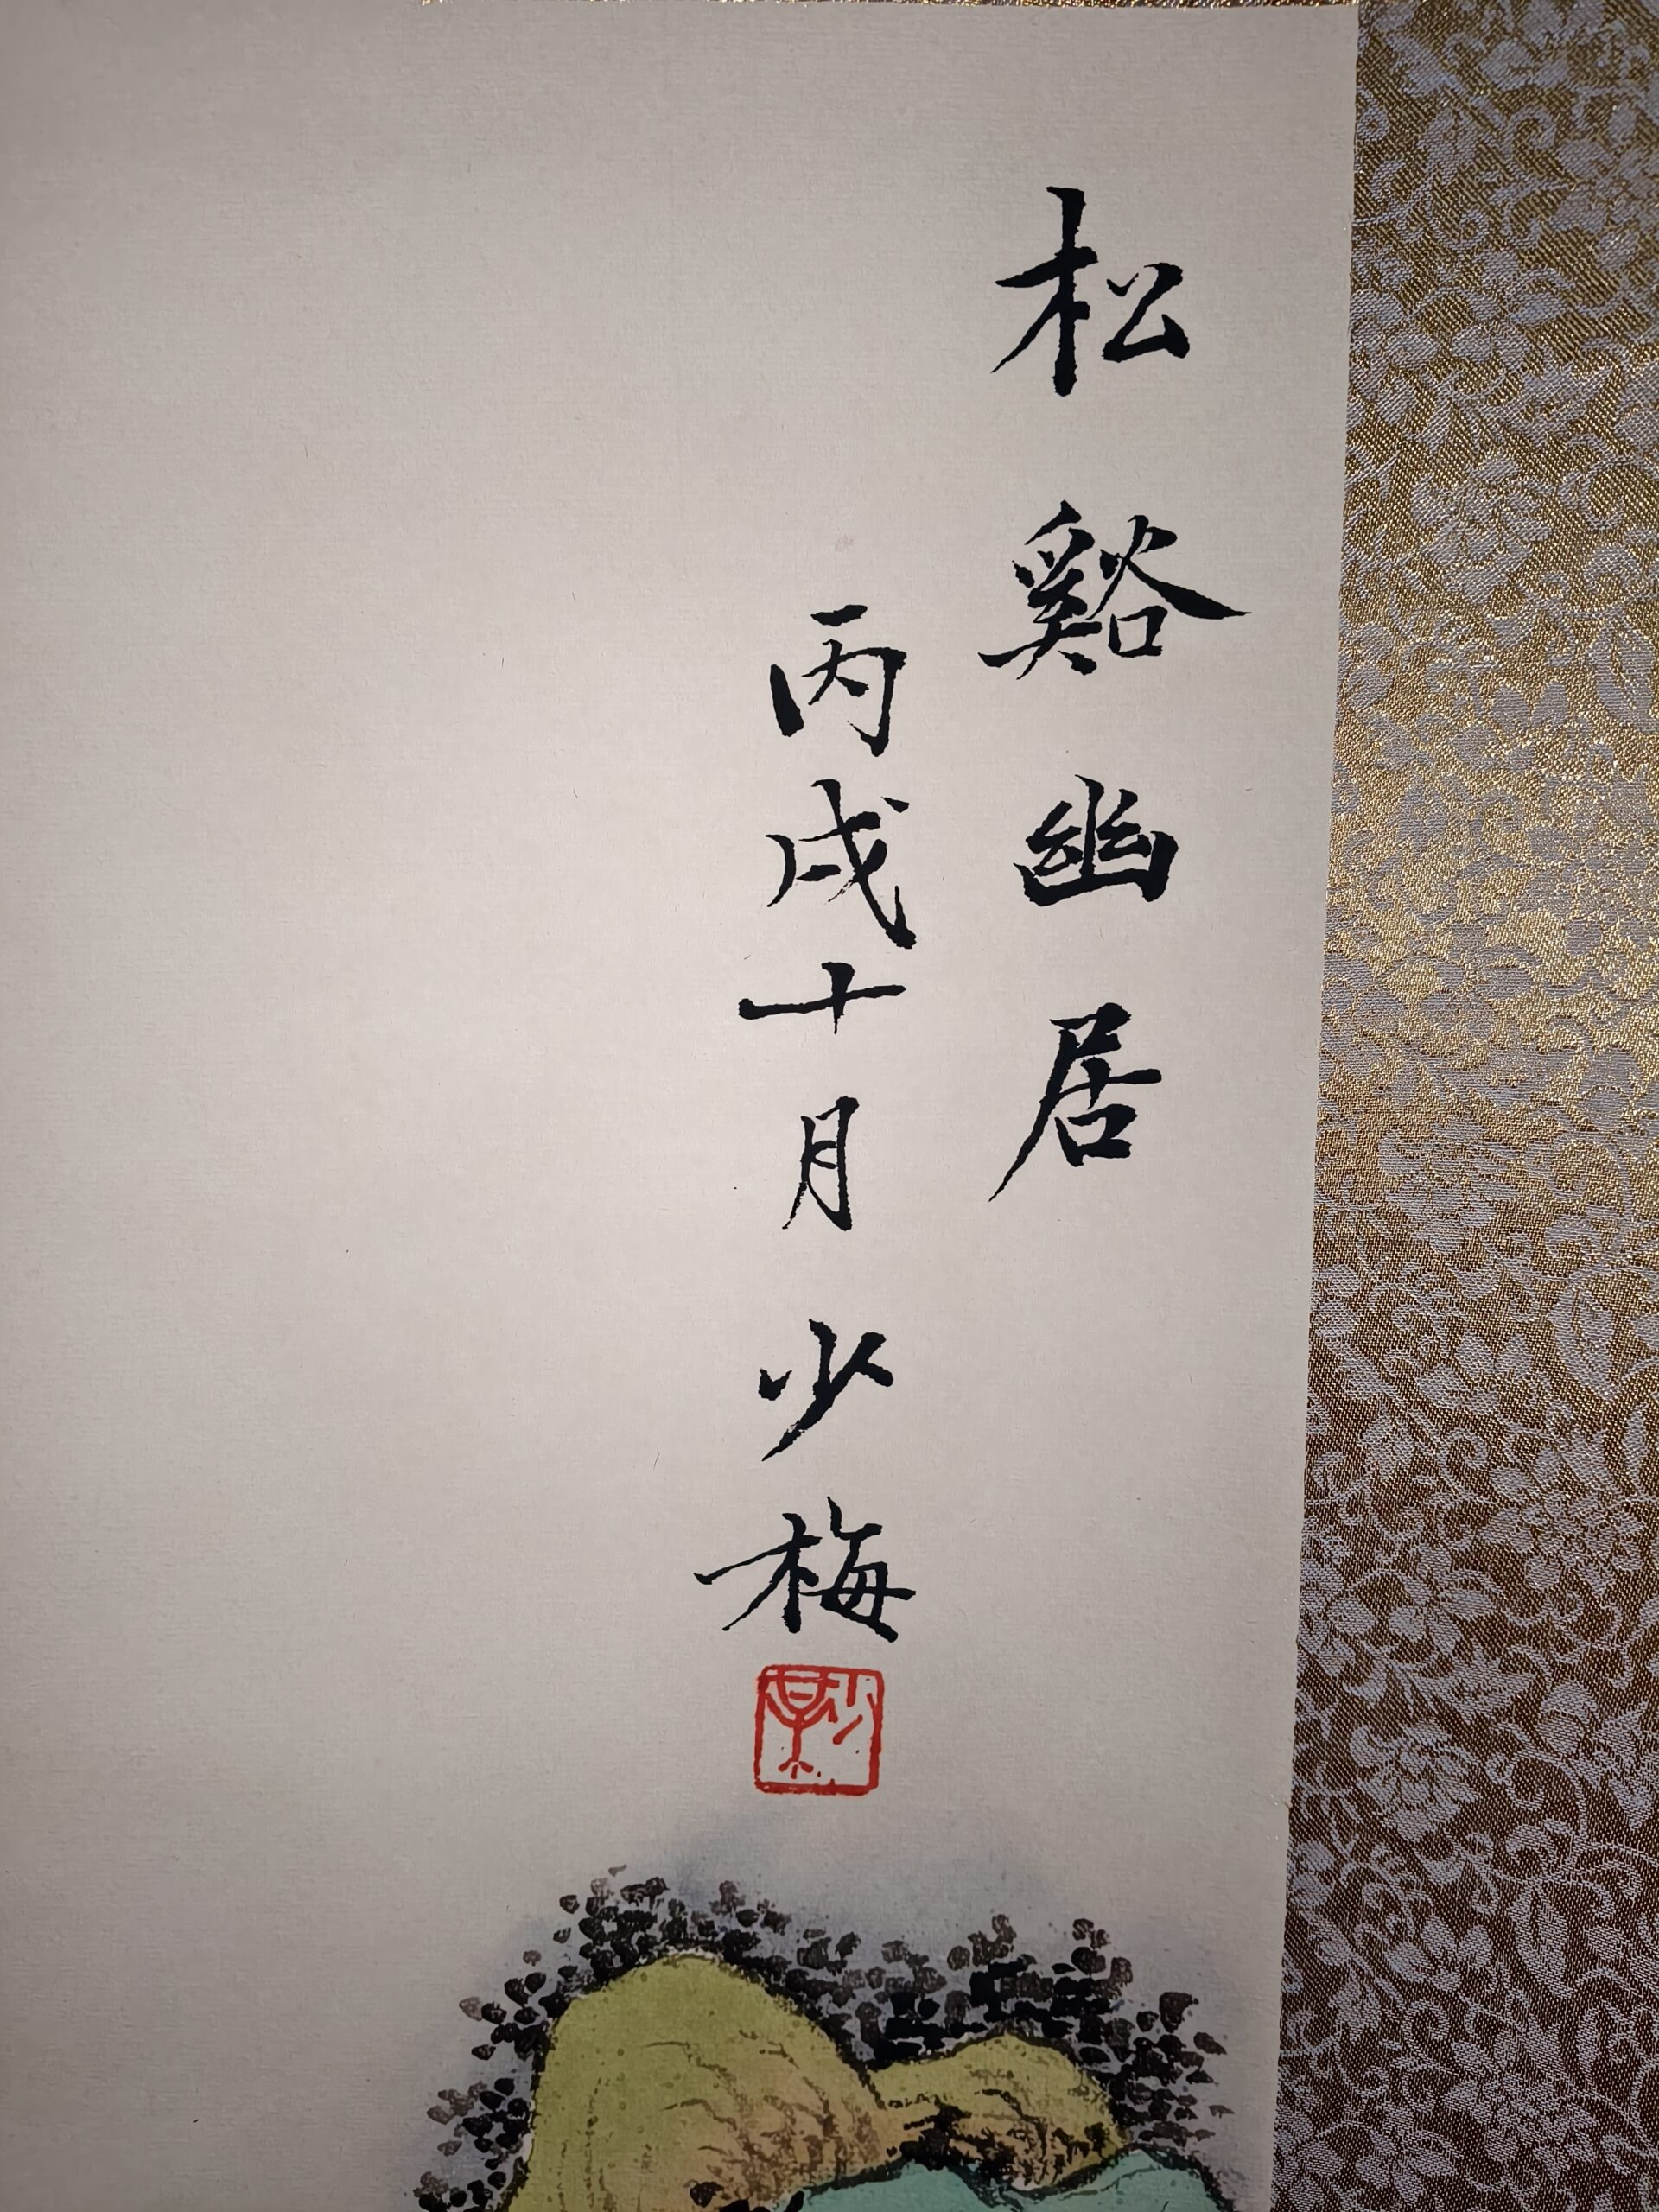 松谿幽居
丙戌十月少梅